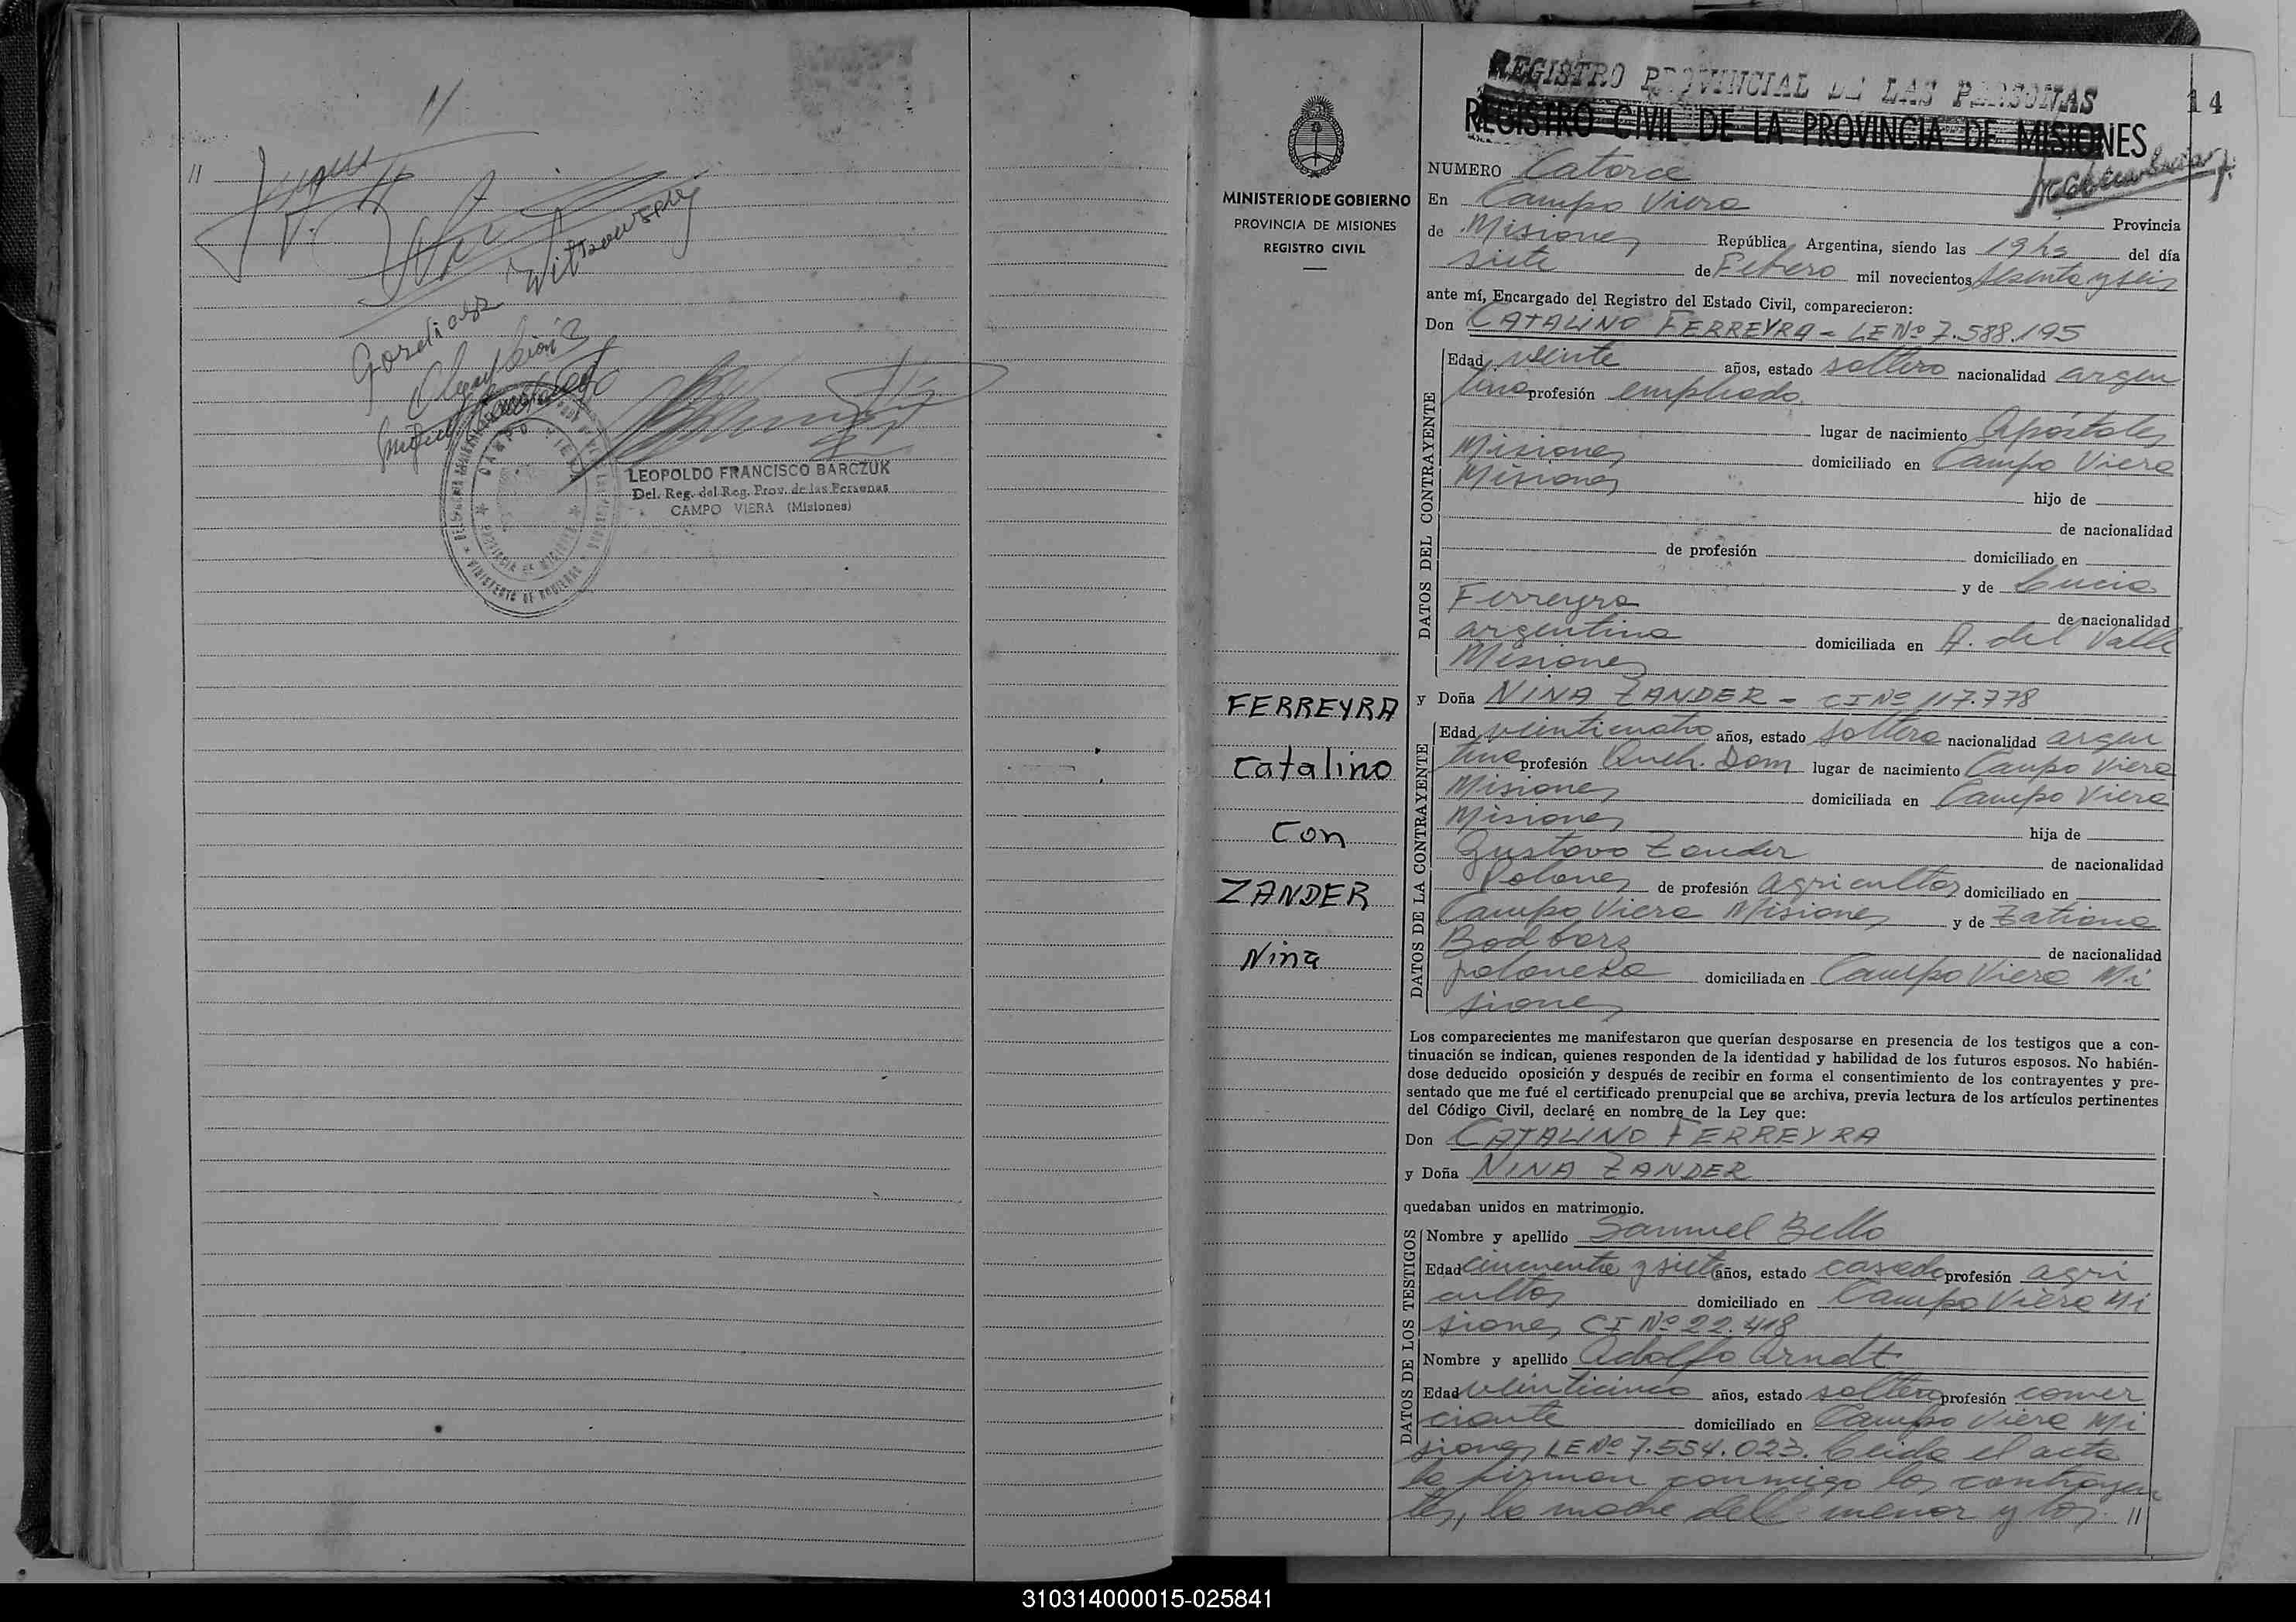 11
11
Witkowski
Gordiasz
CAMPO VIERA
PROVINCIA DE MISIONES
MINISTERIO DE GOBIERNO
LEOPOLDO FRANCISCO BARCZUK
Del. Reg. del Reg. Prov. de las Personas
CAMPO VIERA (Misiones)
MINISTERIO DE GOBIERNO
PROVINCIA DE MISIONES
REGISTRO CIVIL
FERREYRA
Catalino
Con
ZANDER
Nina
REGISTRO PROVINCIAL DE LAS PERSONAS
14
REGISTRO CIVIL DE LA PROVINCIA DE MISIONES
NUMERO Catorce
En Campo Viera
Provincia
de Misiones República Argentina, siendo las 19 hs del día
siete de Febrero mil novecientos sesenta y seis
ante mí, Encargado del Registro del Estado Civil, comparecieron:
Don CATALINO FERREYRA = LE Nº 7.588.195
DATOS DEL CONTRAYENTE
Edad veinte años, estado soltero nacionalidad argen
tina profesión empleado
lugar de nacimiento Apóstoles
Misiones domiciliado en Campo Viera
Misiones hijo de
de nacionalidad
de profesión domiciliado en
y de Lucia
Ferreyra de nacionalidad
argentina domiciliada en A. del Valle
Misiones
y Doña NINA ZANDER = CI Nº 117.778
DATOS DE LA CONTRAYENTE
Edad veinticuatro años, estado soltera nacionalidad argen
tina profesión Queh. Dom lugar de nacimiento Campo Viera
Misiones domiciliada en Campo Viera
Misiones hija de
Gustavo Zander de nacionalidad
Polones de profesión agricultor domiciliado en
Campo Viera Misiones y de Zatiana
Bodbarz de nacionalidad
polonesa domiciliada en Campo Viera Mi
siones
Los comparecientes me manifestaron que querían desposarse en presencia de los testigos que a con-
tinuación se indican, quienes responden de la identidad y habilidad de los futuros esposos. No habién-
dose deducido oposición y después de recibir en forma el consentimiento de los contrayentes y pre-
sentado que me fué el certificado prenupcial que se archiva, previa lectura de los artículos pertinentes
del Código Civil, declaré en nombre de la Ley que:
Don CATALINO FERREYRA
y Doña NINA ZANDER
quedaban unidos en matrimonio.
DATOS DE LOS TESTIGOS
Nombre y apellido Samuel Bello
Edad cincuenta y siete años, estado casado profesión agri
cultor domiciliado en Campo Viera Mi
siones CI Nº 22.418
Nombre y apellido Adolfo Arndt
Edad veinticinco años, estado soltero profesión comer
ciante domiciliado en Campo Viera Mi
siones LE Nº 7.554.023. Leida el acta
la firman conmigo los contrayen
tes, la madre del menor y los 11
310314000015-025841